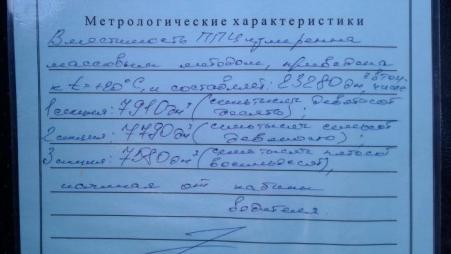 Метрологические характеристики
Вместимость ППЦ измерена
массовым методом, приведена
к t=+20°С, и составляет: 23280 дм³ в том числе
1 секция: 7910 дм³ (семь тысяч девятьсот
десять);
2 секция: 7790 дм³ (семь тысяч семьсот
девяносто);
3 секция: 7580 дм³ (семь тысяч пятьсот
восемьдесят),
начиная от кабины
водителя.